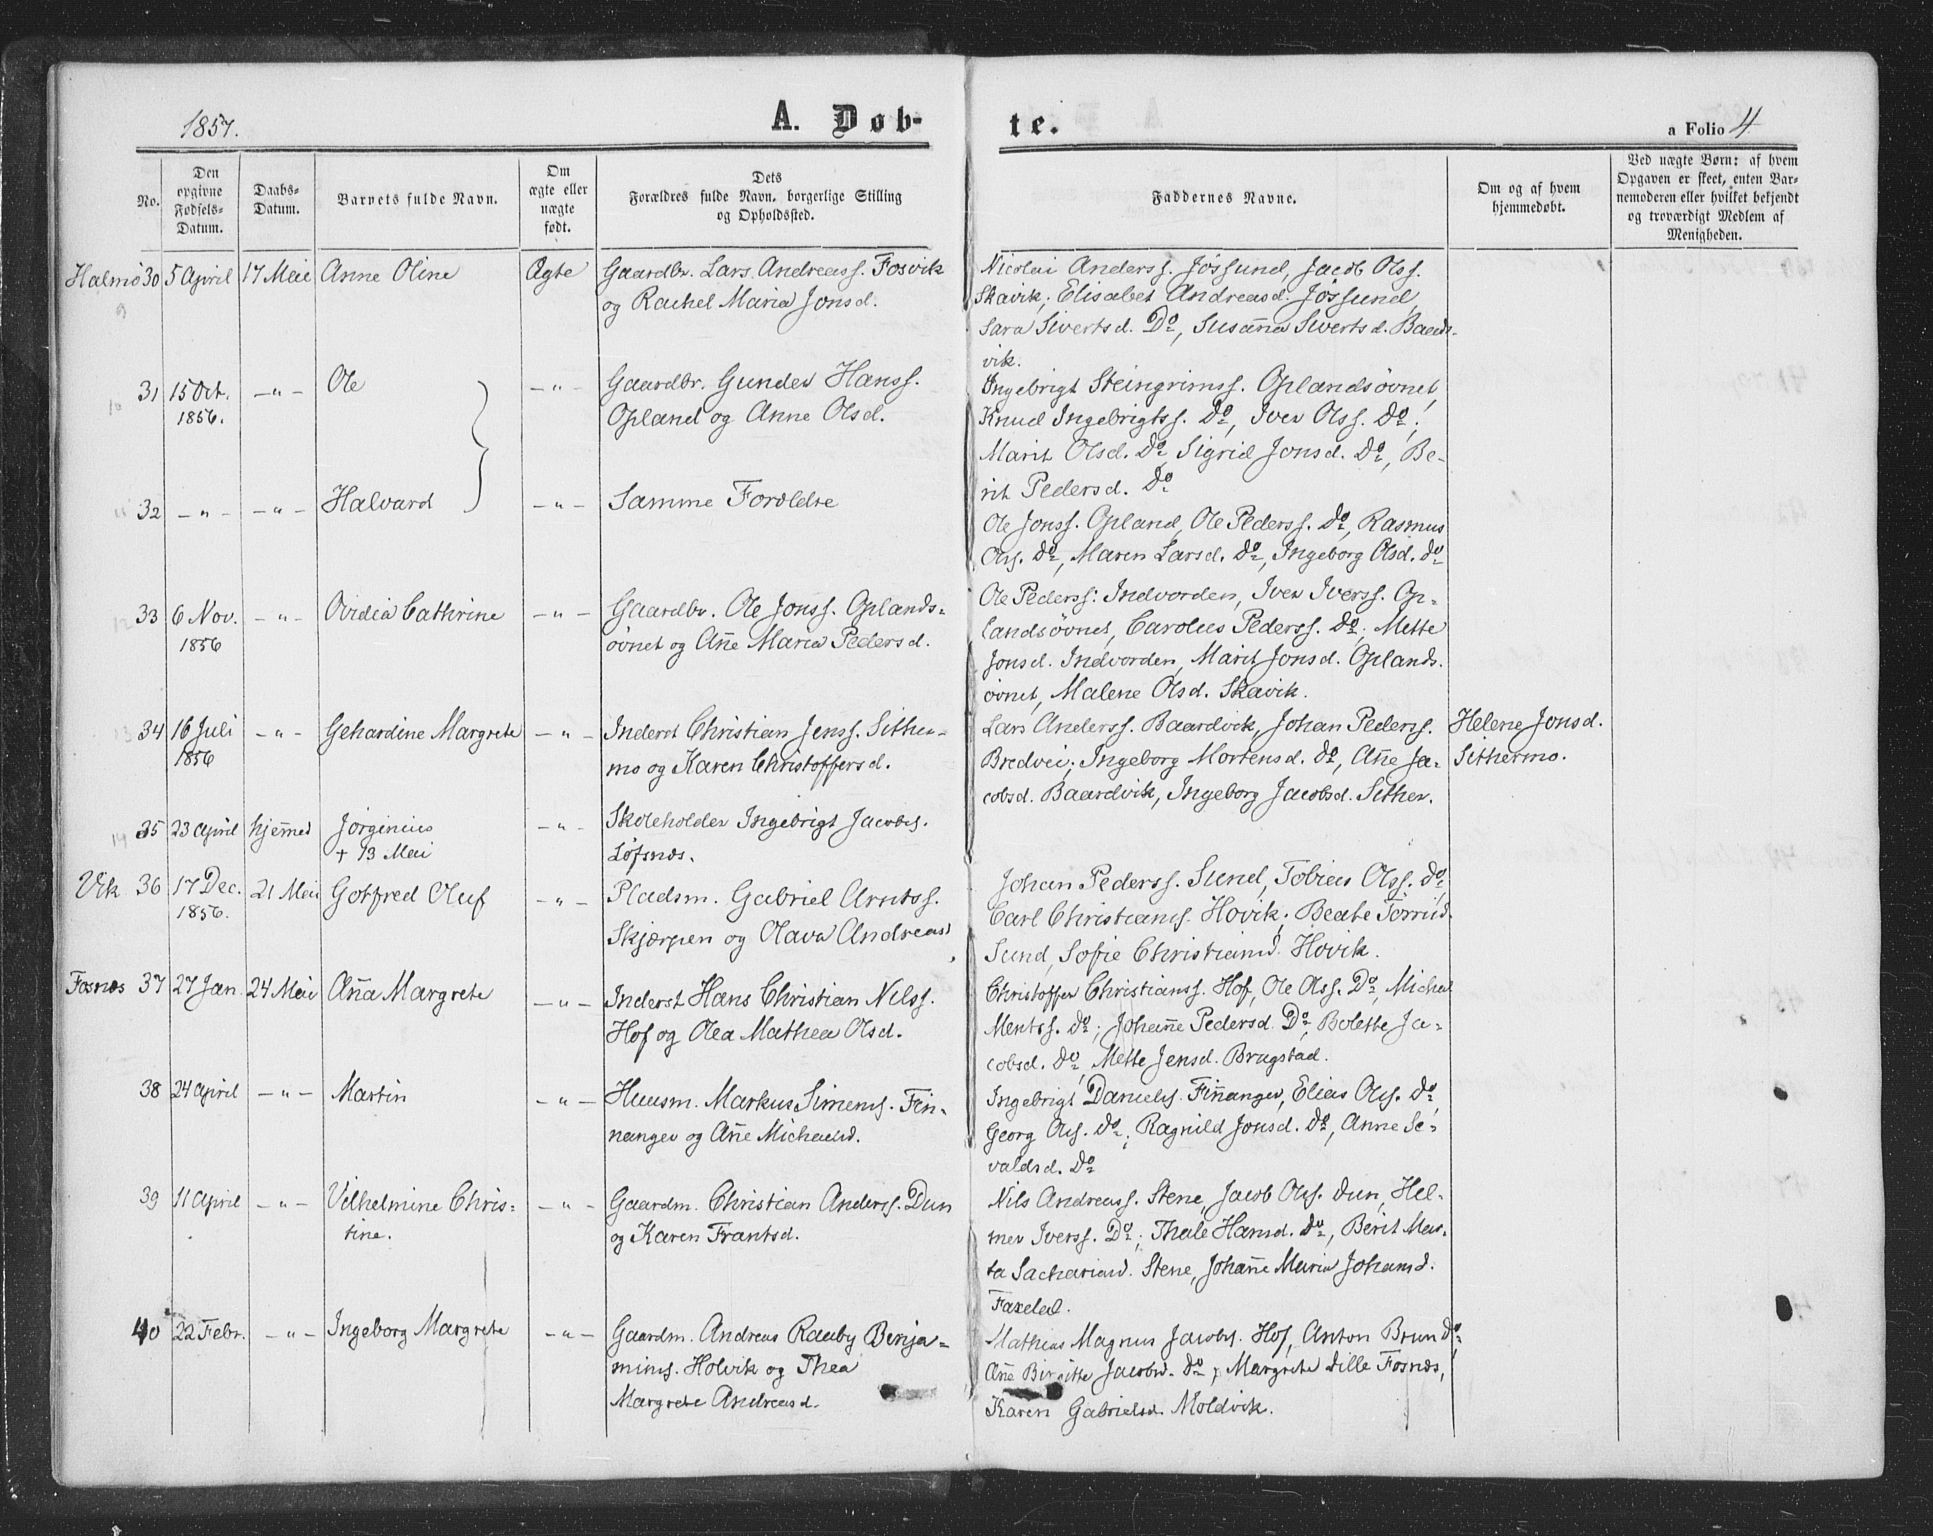 1857.
A. Døb-
te.
a Folio 4
No.
Den opgivne Fødsels-Datum.
Daabs-Datum.
Barnets fulde Navn.
Om ægte eller uægte født.
Dets Forældres fulde Navn, borgerlige Stilling og Opholdssted.
Faddernes Navne.
Om og af hvem hjemmedøbt.
Ved uægte Børn: af hvem Opgaven er skeet, enten Barnemoderen eller hvilket bekjendt og troværdigt Medlem af Menigheden.
Halmø 30 5 April 17 Mai Anne Oline Ægte Gaardbr. Lars Andreass. Fosvik
og Rachel Maria Jonsd.
Nicolai Anderss. Jøssund, Jacob Olss.
Skavik; Elisabet Andreasd. Jøssund,
Sara Sivertsd. Do, Susanna Sivertsd. Baards-
vik.
31 15 Oct. 1856. -"- Ole -"- Gaardbr. Gunder Hanss.
Opland og Anne Olsd.
Ingebrigt Steingrimss. Oplandsøvnet,
Knud Ingebrigtss. Do, Iver Olss. Do;
Marit Olsd. Do, Sigrid Jonsd. Do, Be-
rit Pedersd. Do
32 -"- -"- Halvard -"- Samme Forældre
Ole Jonss. Opland, Ole Pederss. Do, Rasmus
Ols. Do, Maren Larsd. Do, Ingeborg Olsd. do
33 6 Nov. 1856 -"- Ovidia Cathrine -"- Gaardbr. Ole Jonss. Oplands-
øvnet og Añe Maria Pedersd.
Ole Pederss: Indvorden, Iver Iverss. Op-
landsøvnet, Carolus Pederss. Do; Mette
Jonsd. Indvorden, Marit Jonsd. Oplands-
øvnet, Malene Olsd. Skavik.
34 16 Juli 1856 -"- Gehardine Margrete -"- Inderst Christian Jenss. Sither-
mo og Karen Christoffersd.
Lars Anderss. Baardvik, Johan Pederss.
Bredvei; Ingeborg Mortensd. do, Añe Ja-
cobsd. Baardvik, Ingeborg Jacobsd. Sither.
Helene Jonsd.
Sithermo.
35 23 April hjemed Jørginius
+ 13 Mai
-"- Skoleholder Ingebrigt Jacobs.
Løfsnes.
Vik 36 17 Dec. 1856. 21 Mai Gotfred Oluf -"- Pladsm. Gabriel Arntss.
Skjærpen og Olava Andreasd
Johan Pederss. Sund, Tobias Olss. do
Carl Christians. Hovik; Beate Torrisd.
Sund, Sofie Christiansd. Hovik.
Fosnæs 37 27 Jan. 24 Mai Aña Margrete -"- Inderst Hans Christian Nilss.
Hof og Olea Mathea Olsd.
Christoffer Christianss. Hof, Ole Olss. Do, Michal
Mentss. do; Johañe Pedersd. Do, Bolette Ja-
cobsd. do, Mette Jensd. Brugstad.
38 24 April -"- Martin -"- Huusm. Markus Simens. Fin-
nanger og Añe Michaelsd.
Ingebrigt Daniels. Fiñanger, Elias Ols. do,
Georg Ols. do; Ragnild Jonsd. do, Anne Se-
valdsd. Do
39 11 April -"- Vilhelmine Chris-
tine.
-"- Gaardm. Christian Anderss. Dun
og Karen Frantsd.
Nils Andreass. Stene, Jacob Ols. Dun, Hel-
mer Iverss. Do; Thale Hansd. do, Berit Mar-
ta Sachariasd. Stene, Johañe Maria Johansd.
Faxeled.
40 22 Febr. -"- Ingeborg Margrete -"- Gaardm. Andreas Raaby Benja-
mins. Holvik og Thea
Margrete Andreasd.
Mathias Magnus Jacobs. Hof, Anton Brun do;
Añe Birgitte Jacobsd. do, Margrete Dille Fosnæs,
Karen Gabrielsd. Moldvik.